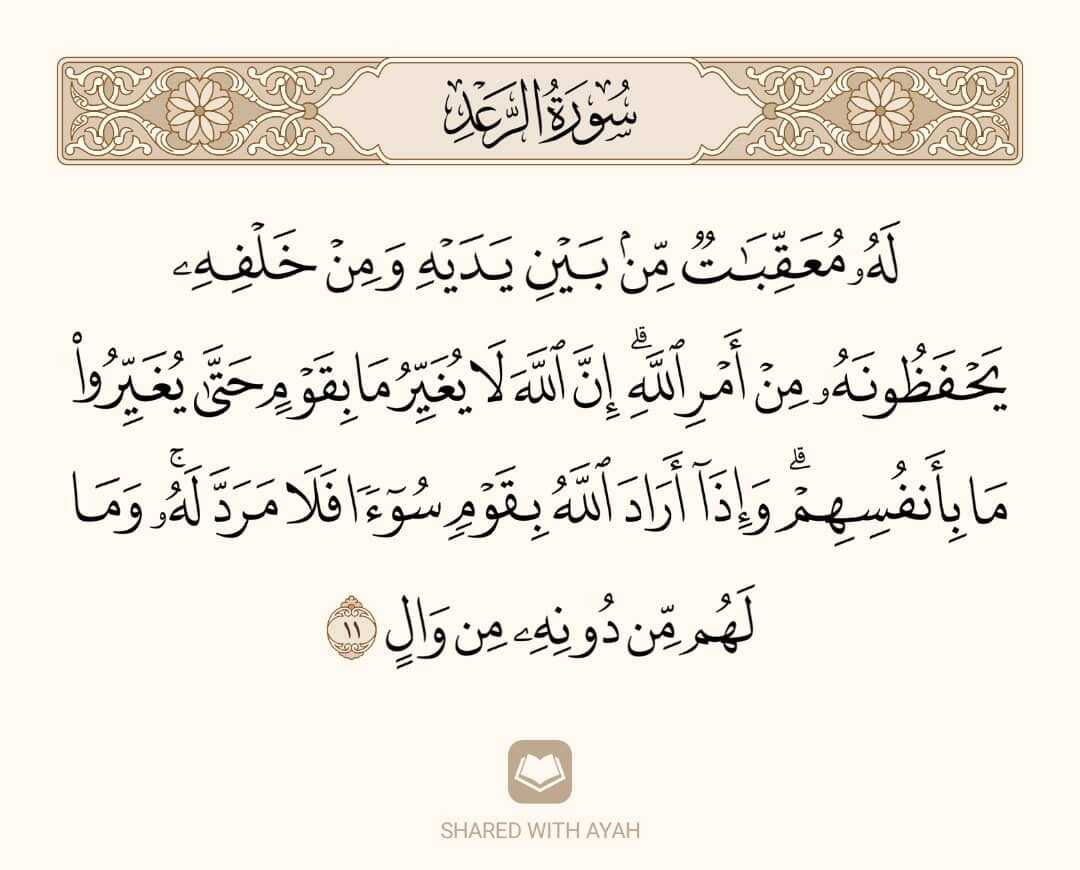 سُورَةُ الرَّعْدِ
لَهُۥ مُعَقِّبَـٰتٌۭ مِّنۢ بَيْنِ يَدَيْهِ وَمِنْ خَلْفِهِۦ
يَحْفَظُونَهُۥ مِنْ أَمْرِ ٱللَّهِ ۗ إِنَّ ٱللَّهَ لَا يُغَيِّرُ مَا بِقَوْمٍ حَتَّىٰ يُغَيِّرُوا۟
مَا بِأَنفُسِهِمْ ۗ وَإِذَآ أَرَادَ ٱللَّهُ بِقَوْمٍۢ سُوٓءًۭا فَلَا مَرَدَّ لَهُۥ ۚ وَمَا
لَهُم مِّن دُونِهِۦ مِن وَالٍ ١١
SHARED WITH AYAH